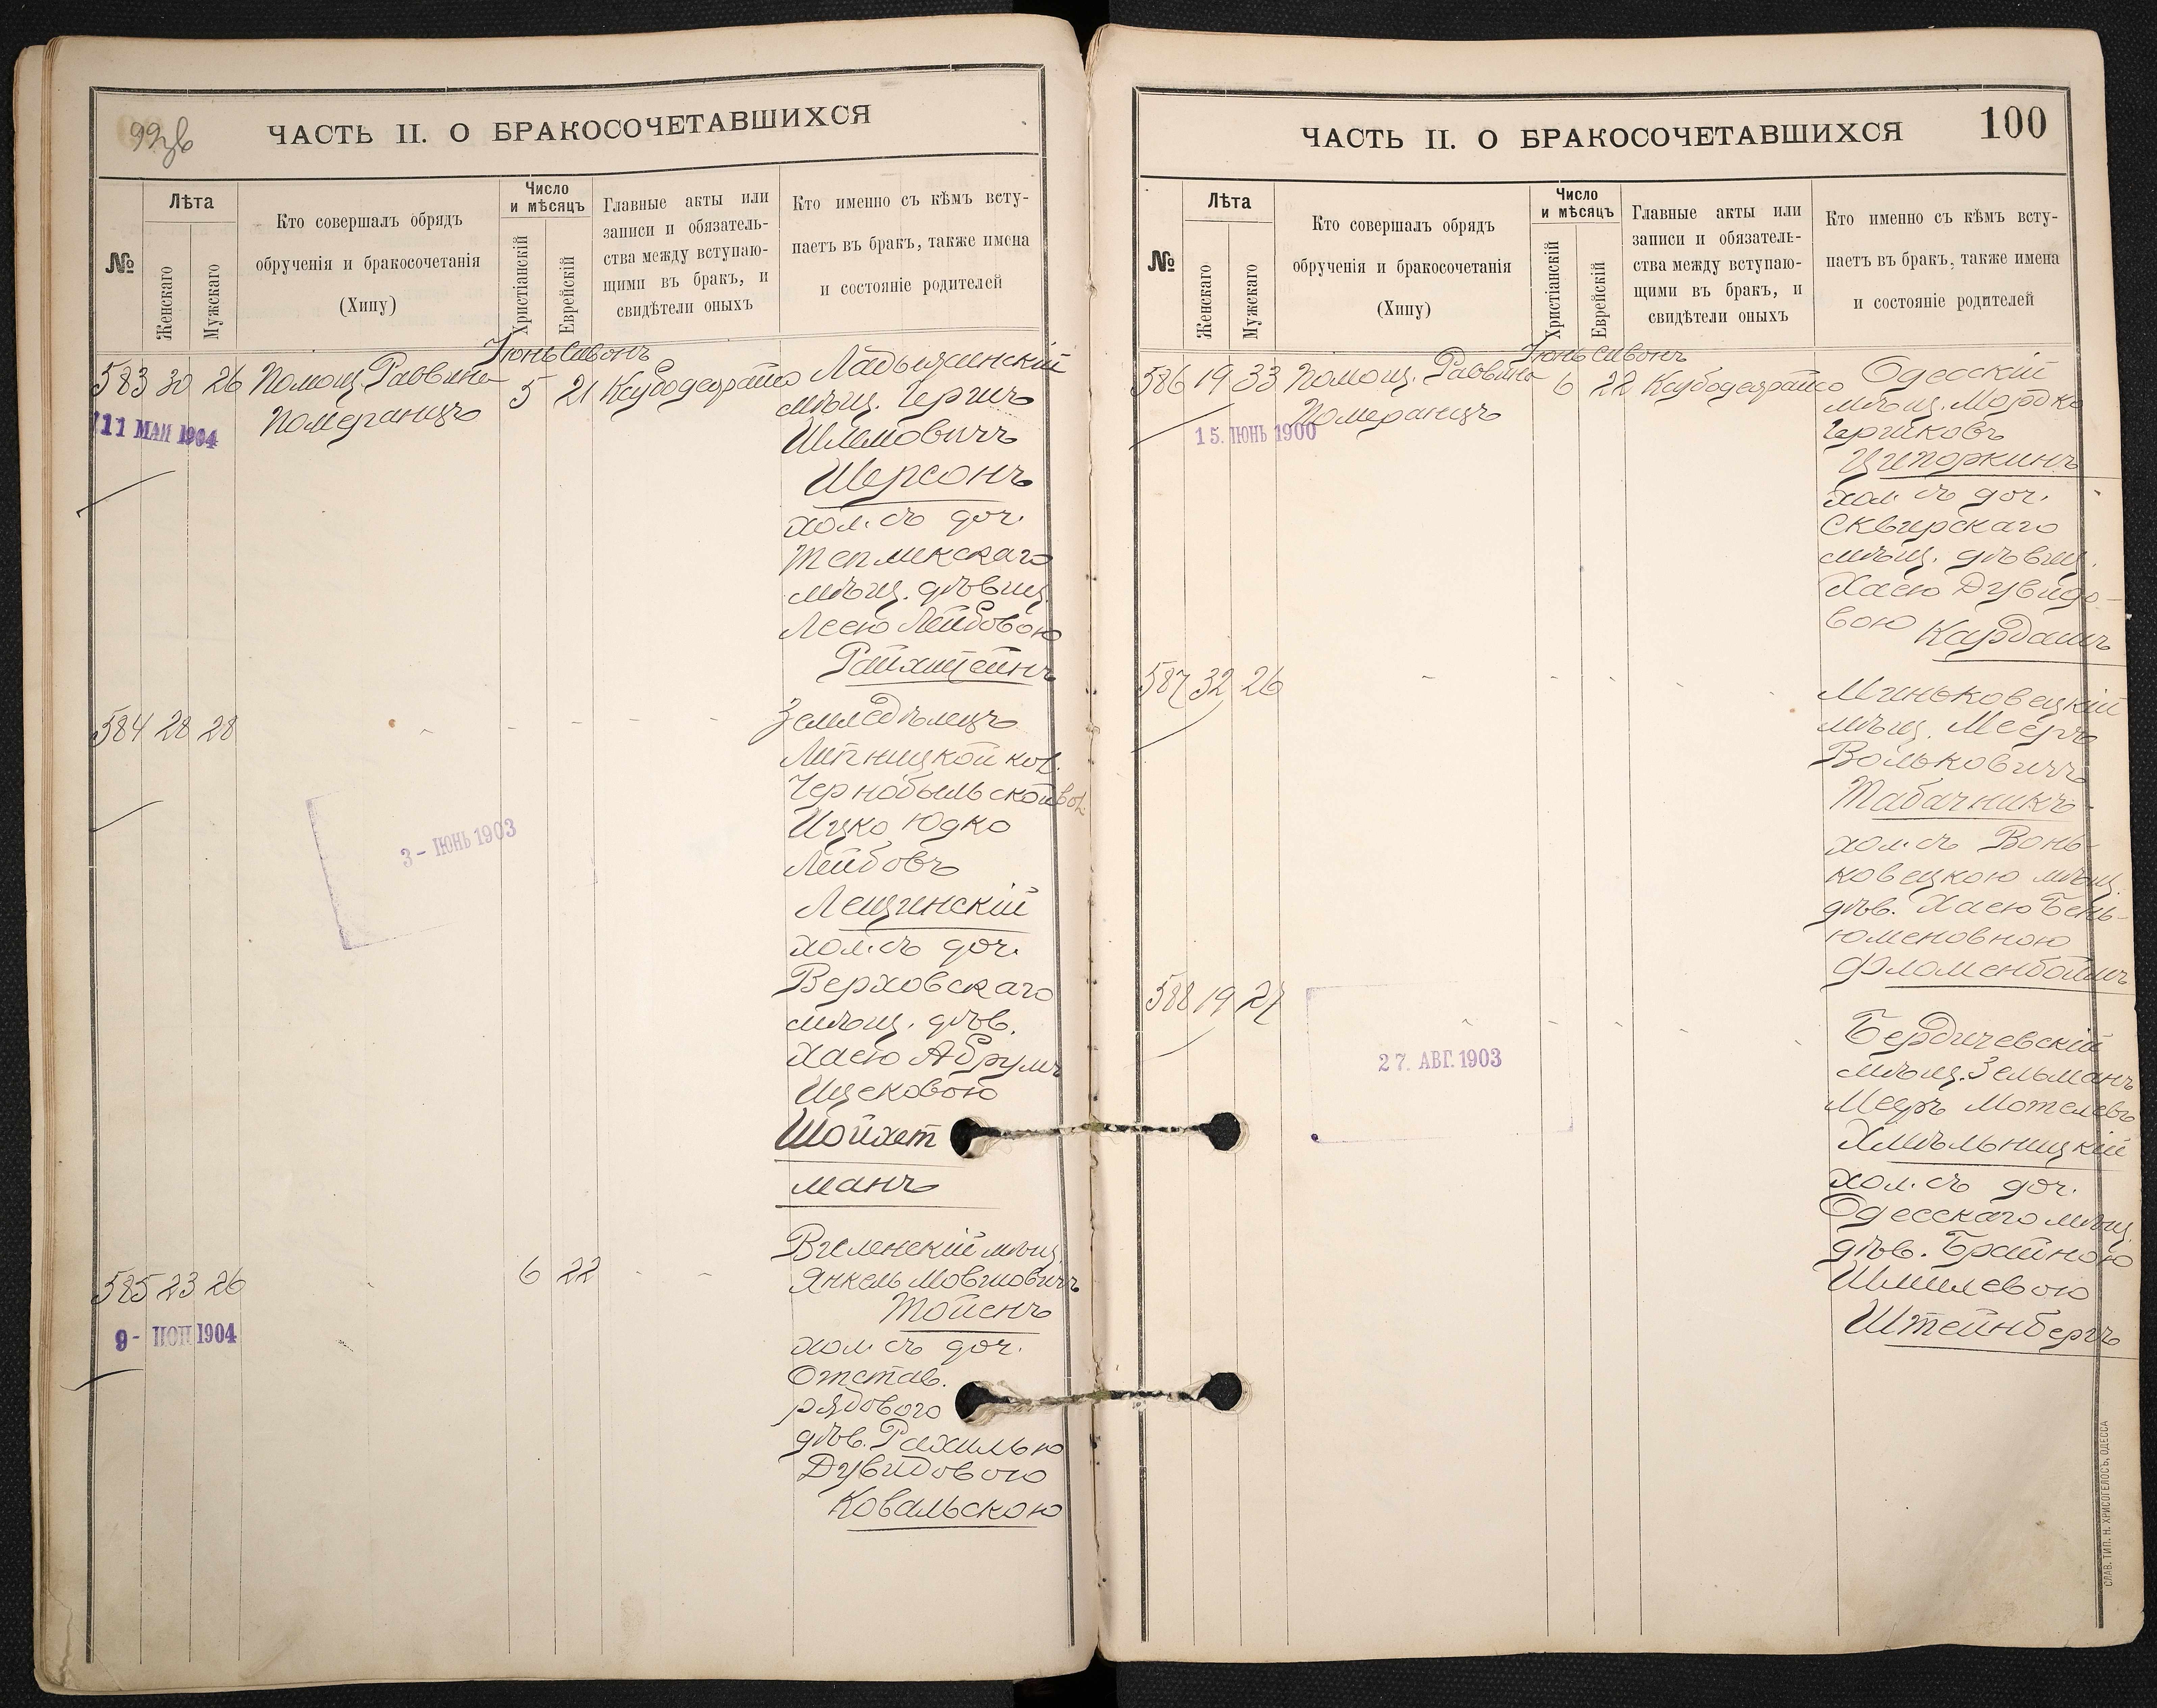 99 об
ЧАСТЬ II. О БРАКОСОЧЕТАВШИХСЯ
№
Лѣта
Женскаго
Мужскаго
Кто совершалъ обрядъ
обрученія и бракосочетанія
(Хипу)
Число
и мѣсяцъ
Христіанскій
Еврейскій
Главные акты или
записи и обязатель-
ства между вступаю-
щими въ бракъ, и
свидѣтели оныхъ
Кто именно съ кѣмъ всту-
паетъ въ бракъ, также имена
и состояніе родителей
Іюнь Сивонъ
583 30 26 Помощ. Раввина 5 21
Померанцъ
11 МАЙ 1904
Ладыжинскій
мѣщ. Гершъ
Шлемовичъ
Шерсонъ
хол. съ доч.
Тепликскаго
мѣщ. дѣвиц.
Лею Лейбовою
Райхштейнъ
584 28 28
3 - ІЮНЬ 1903
Земледѣлецъ
кол.
Чернобыльской вол.
Ицко Юдко
Лейбовъ
Лещинскій
хол. съ доч.
Верховскаго
мѣщ. дѣв.
Хаею Абрумъ
Ицековою
Шойхет
манъ
585 23 26 6 22
9 - ІЮН 1904
Виленскій мѣщ.
Янкель Мовшовичъ
Тойенъ
хол. съ доч.
Отстав.
рядового
дѣв. Рахилью
Дувидовою
Ковальскою
ЧАСТЬ II. О БРАКОСОЧЕТАВШИХСЯ
100
№
Лѣта
Женскаго
Мужскаго
Кто совершалъ обрядъ
обрученія и бракосочетанія
(Хипу)
Число
и мѣсяцъ
Христіанскій
Еврейскій
Главные акты или
записи и обязатель-
ства между вступаю-
щими въ бракъ, и
свидѣтели оныхъ
Кто именно съ кѣмъ всту-
паетъ въ бракъ, также имена
и состояніе родителей
Іюнь Сивонъ
586 19 33 Помощ. Раввина 6 22
Померанцъ
15. ІЮНЬ 1900
Одесскій
мѣщ. Мордко
Гершковъ
Ципоркинъ
хол. съ доч.
Сквирскаго
мѣщ. дѣвиц.
Хаею Дувидо-
вою
587 32 26
Миньковецкій
мѣщ. Мееръ
Вольковичъ
Табачникъ
хол. съ Вонь-
ковецкою мѣщ.
дѣв. Хаею Бень-
юменовною
588 19 27
27. АВГ. 1903
Бердичевскій
мѣщ. Зельманъ
Мееръ Мотелевъ
Хмѣльницкій
хол. съ доч.
Одесскаго мѣщ.
дѣв. Брайною
Шмилевою
Штейнбергъ
СЛАВ. ТИП. Н. ХРИСОГЕЛОСЪ, ОДЕССА